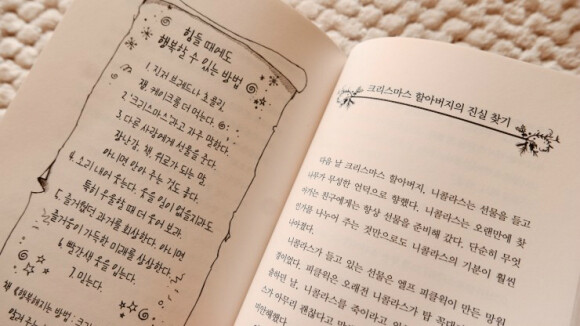 힘들 때에도
행복할 수 있는 방법
1. 진저 브레드나 초콜릿,
잼, 케이크를 더 먹는다.
2. '크리스마스'라고 자주 말한다.
3. 다른 사람에게 선물을 준다.
장난감, 책, 위로가 되는 말.
아니면 안아 주는 것도 좋다.
4. 소리 내어 웃는다. 웃을 일이 없을지라도
특히 우울할 때 더 웃어 보자.
5. 즐거웠던 과거를 회상한다. 아니면
즐거움이 가득한 미래를 상상한다.
6. 빨간색 옷을 입는다.
7. 믿는다.
책 《행복해지는 방법: 크리
크리스마스 할아버지의 진실 찾기
다음 날 크리스마스 할아버지, 니콜라스는 선물을 들고
나무가 무성한 언덕으로 향했다. 니콜라스는 오랜만에 찾
아가는 친구에게는 항상 선물을 준비해 갔다. 단순히 무엇
인가를 나누어 주는 것만으로도 니콜라스의 기분이 훨씬
나아졌다.
니콜라스가 들고 있는 선물은 엘프 퍼클윅이 만든 망원
경이었다. 퍼클윅은 오래전 니콜라스가 탑 꼭대
을하던 날, 니콜라스를 죽이라고
스가 아무리 괜찮다고 말
미안해했다.